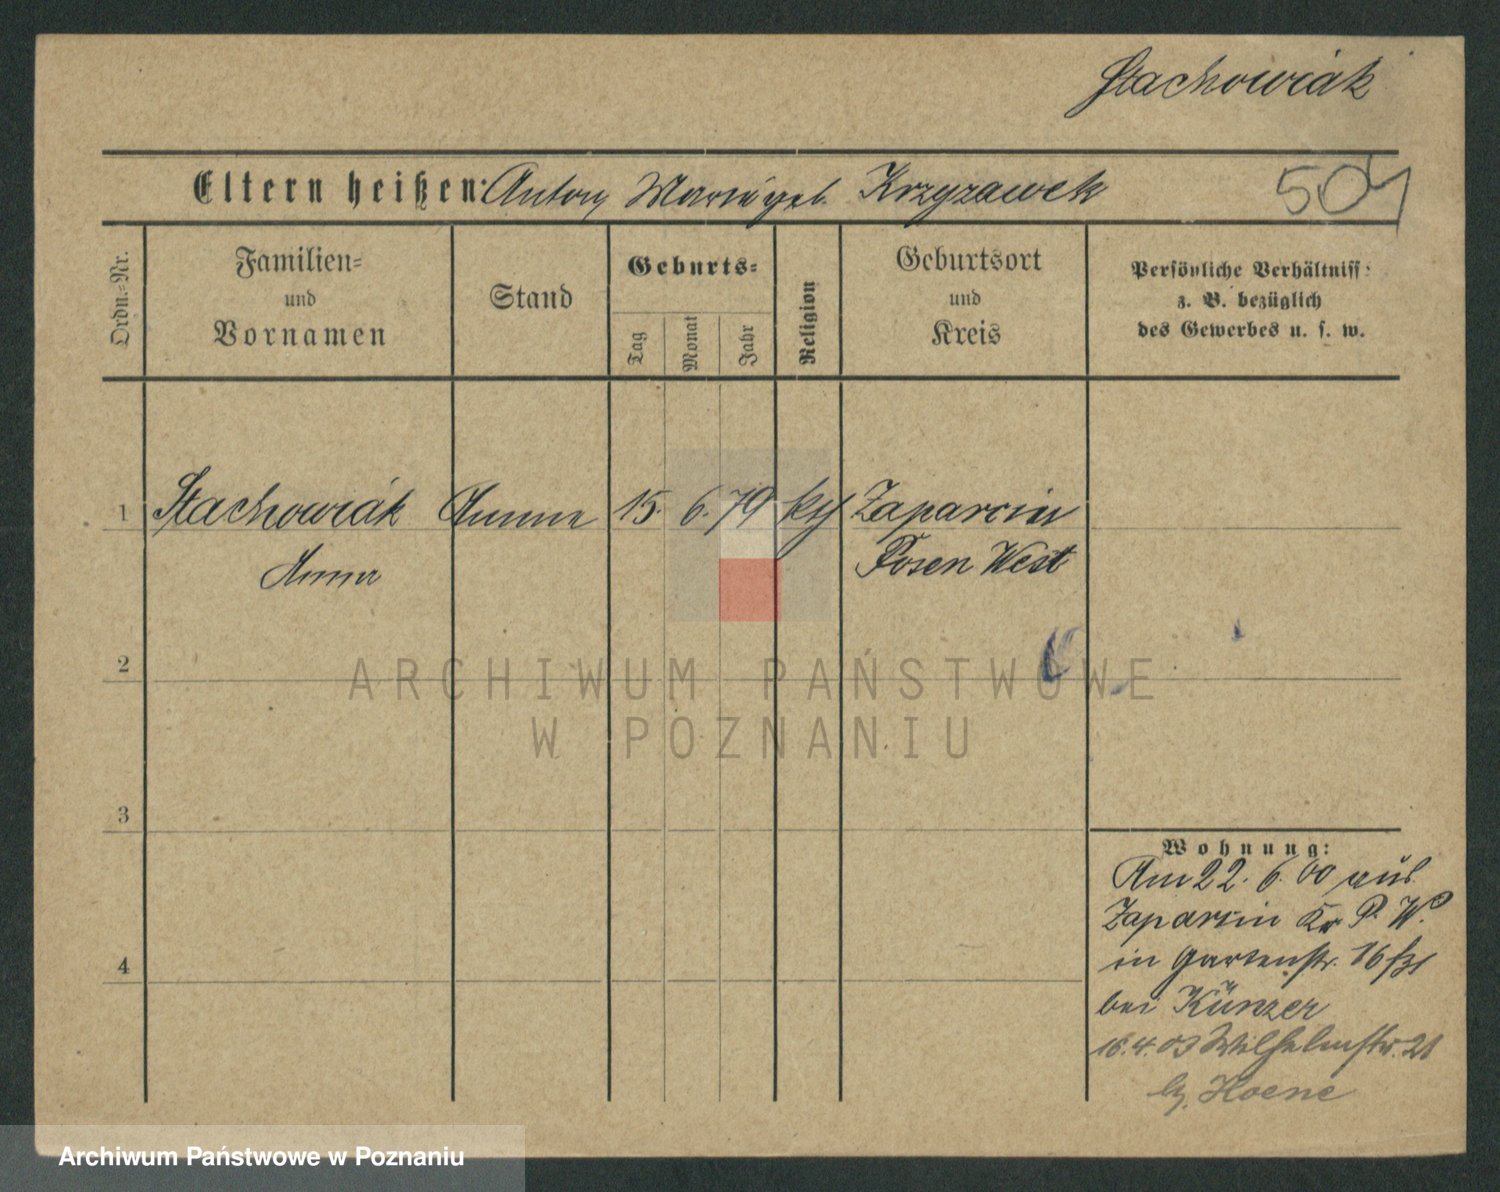 Stachowiák
Eltern heißen: Anton, Marie geb. Krzyzawek
504
Ordn.-Nr.
Familien-
und
Vornamen
Stand
Geburts-
Tag
Monat
Jahr
Religion
Geburtsort
und
Kreis
Persönliche Verhältniss
z. B. bezüglich
des Gewerbes u. s. w.
1 Stachowiák Amme 15. 6. 79 kth Zaparcin
Anna Posen West
2
ARCHIWUM PAŃSTWOWE
W POZNANIU
3
Wohnung:
Am 22. 6. 00 aus
Zaparcin Kr P. W.
in Gartenstr. 16
bei Künzer
16.4.03 Wilhelmstr. 21
b. Hoene
4
Archiwum Państwowe w Poznaniu